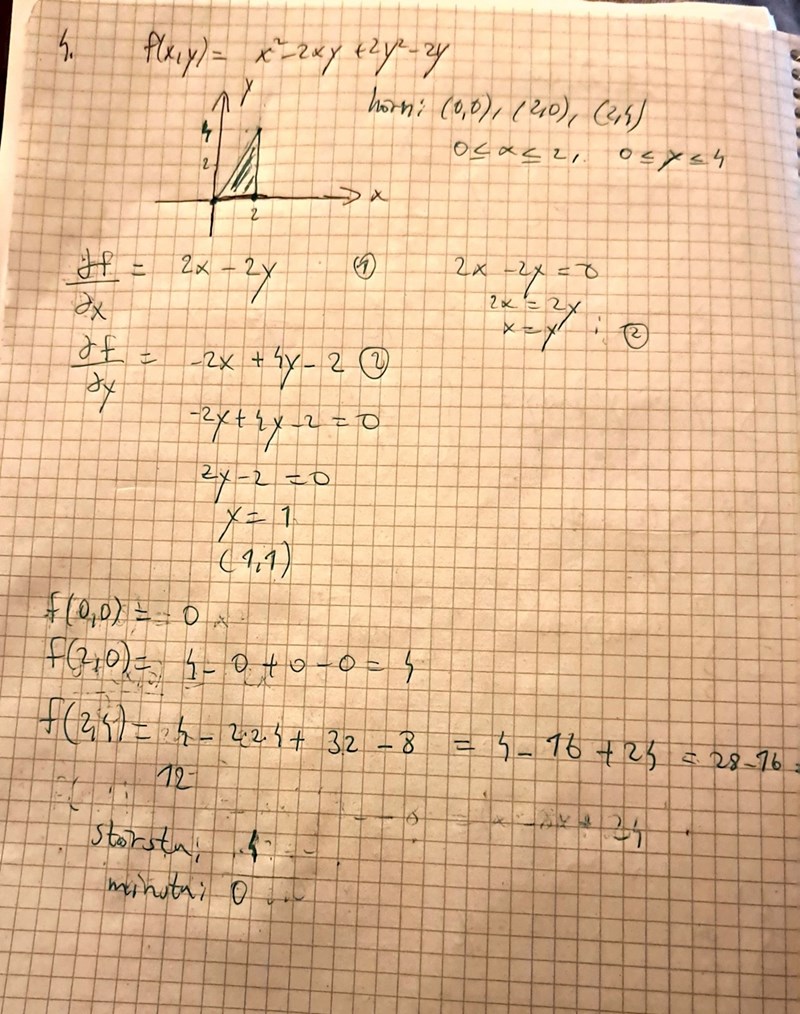 4. f(x,y) = x² - 2xy + 2y² - 2y
y
4
2
x
2
hörn: (0,0), (2,0), (2,4)
0 ≤ x ≤ 2, 0 ≤ y ≤ 4
∂f/∂x = 2x - 2y ①
2x - 2y = 0
2x = 2y
x = y i ②
∂f/∂y = -2x + 4y - 2 ②
-2y + 4y - 2 = 0
2y - 2 = 0
y = 1
(1,1)
f(0,0) = = 0
f(2,0) = 4 - 0 + 0 - 0 = 4
f(2,4) = 4 - 2·2·4 + 32 - 8 = 4 - 16 + 24 = 28 - 16 =
12
största: 4
minsta: 0